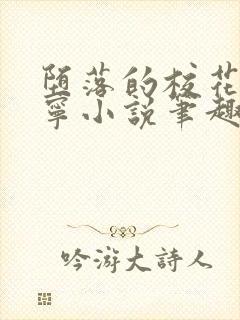 堕落的校花
寧小说笔趣
吟游大詩人